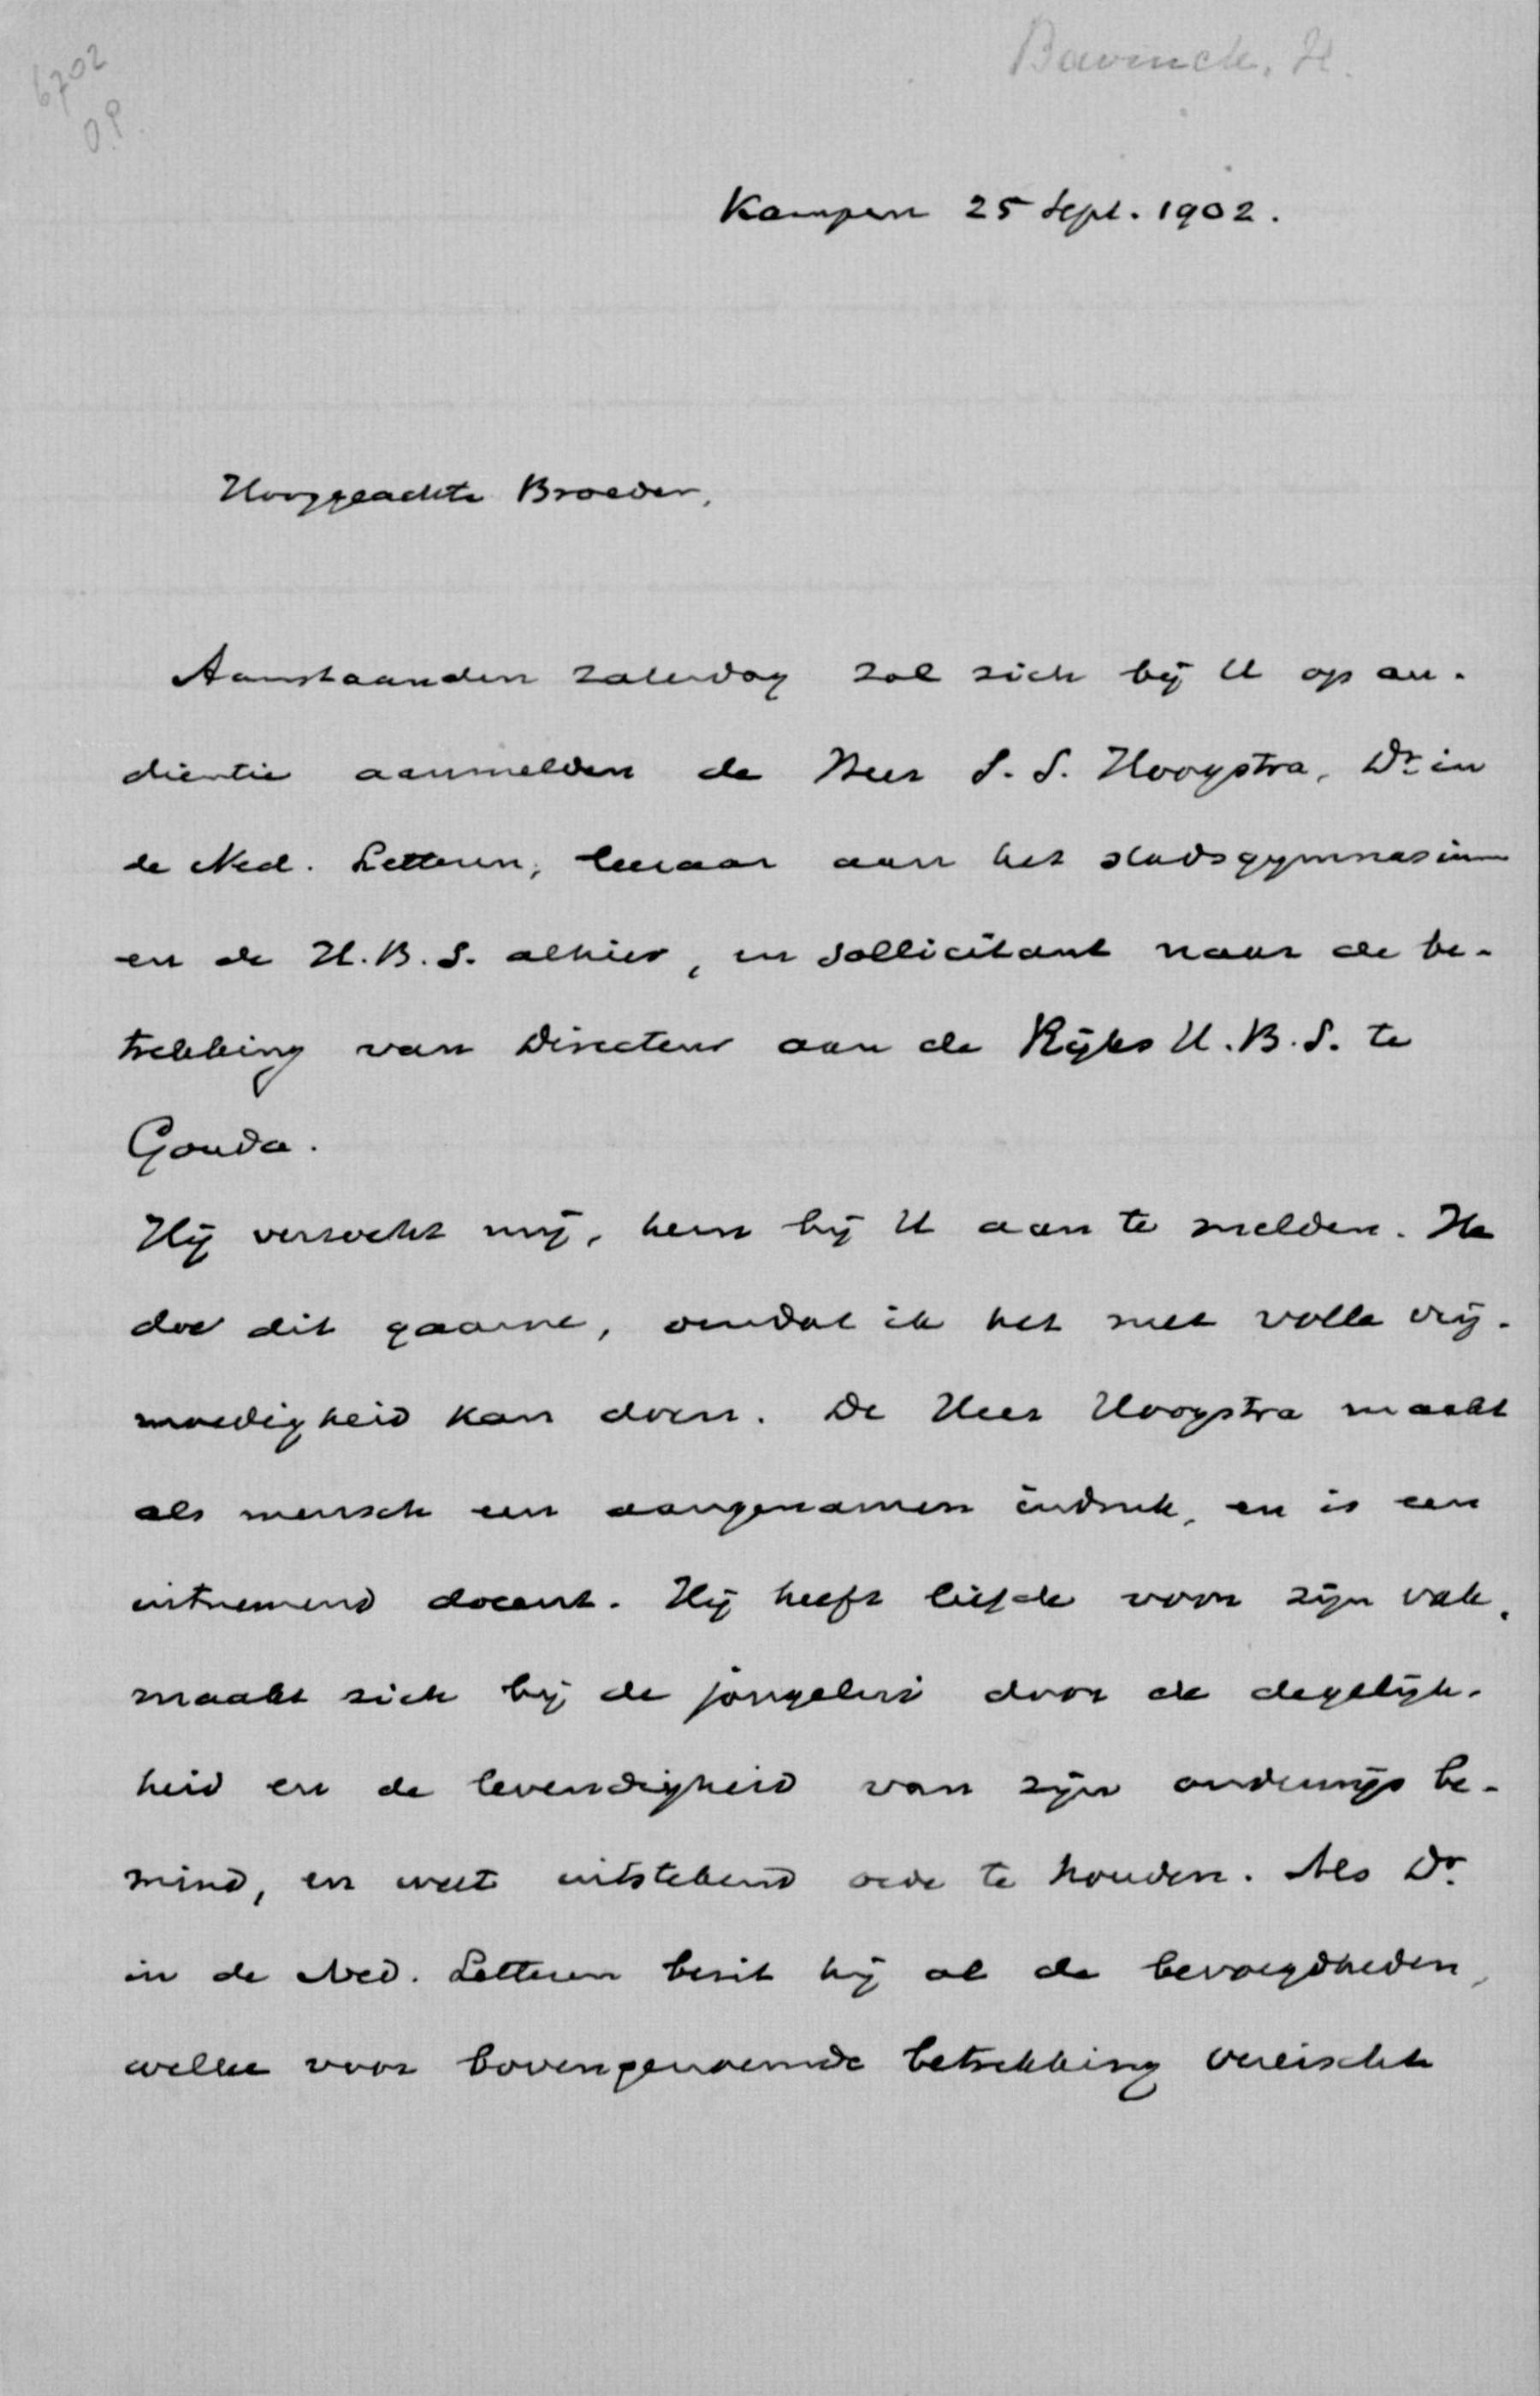 6702
O.P.
Bavinck, H.
Kampen 25 Sept. 1902.
Hooggeachte Broeder,
Aanstaanden Zaterdag zal zich bij U op au-
dientie aanmelden de Heer S. S. Hoogstra, Dr. in
de Ned. Letteren, leeraar aan het stadsgymnasium
en de H.B.S. alhier, en sollicitant naar de be-
trekking van Directeur aan de Rijks H.B.S. te
Gouda.
Hij verzocht mij, hem bij U aan te melden. Ik
doe dit gaarne, omdat ik het met volle vrij-
moedigheid kan doen. De Heer Hoogstra maakt
als mensch een aangenamen indruk, en is een
uitnemend docent. Hij heeft liefde voor zijn vak,
maakt zich bij de jongelui door de degelijk-
heid en de levendigheid van zijn onderwijs be-
mind, en weet uitstekend orde te houden. Als Dr.
in de Ned. Letteren bezit hij al de bevoegdheden,
welke voor bovengenoemde betrekking vereischte